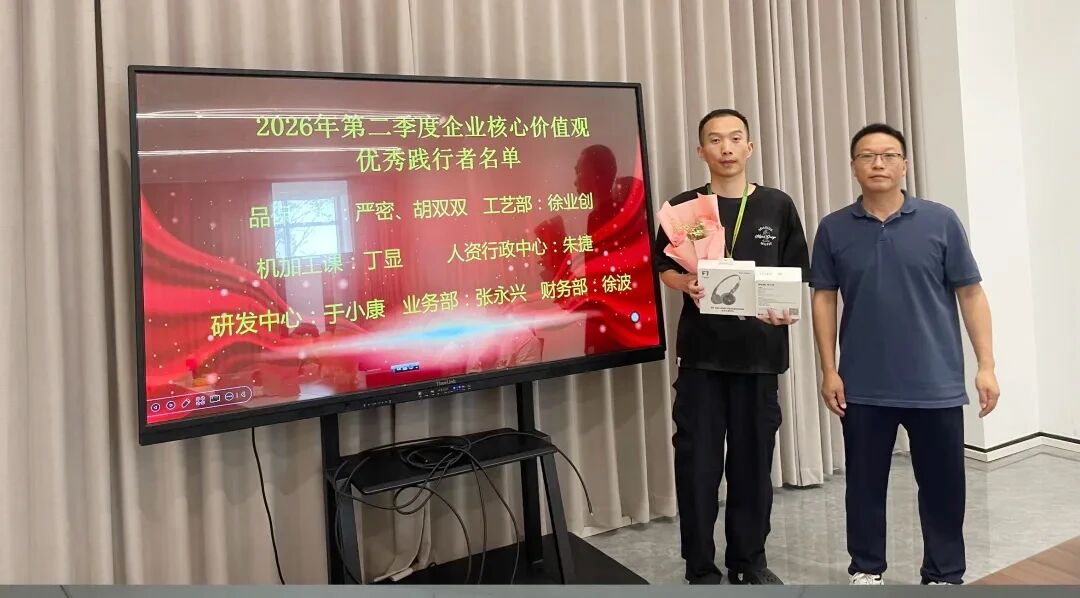 2026年第二季度企业核心价值观
优秀践行者名单
品 严密、胡双双 工艺部：徐业创
机加工课：丁显 人资行政中心：朱捷
研发中心：于小康 业务部：张永兴 财务部：徐波